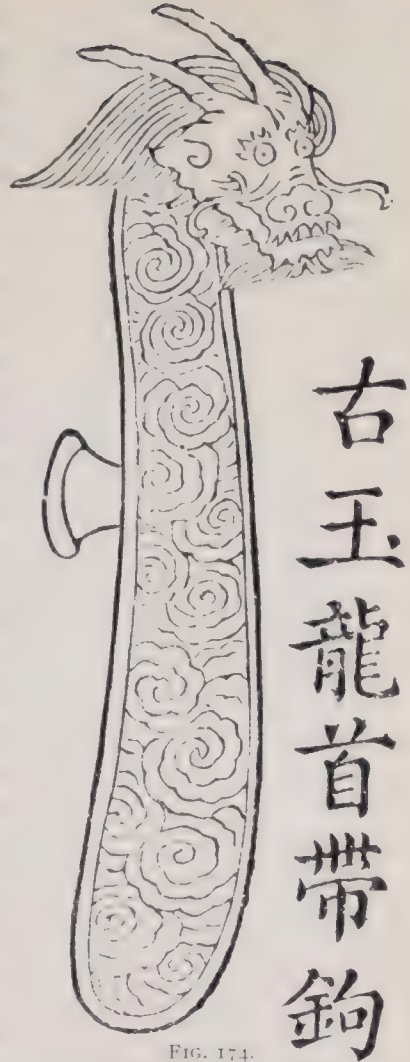 古玉龍首帶鉤
FIG. 174.